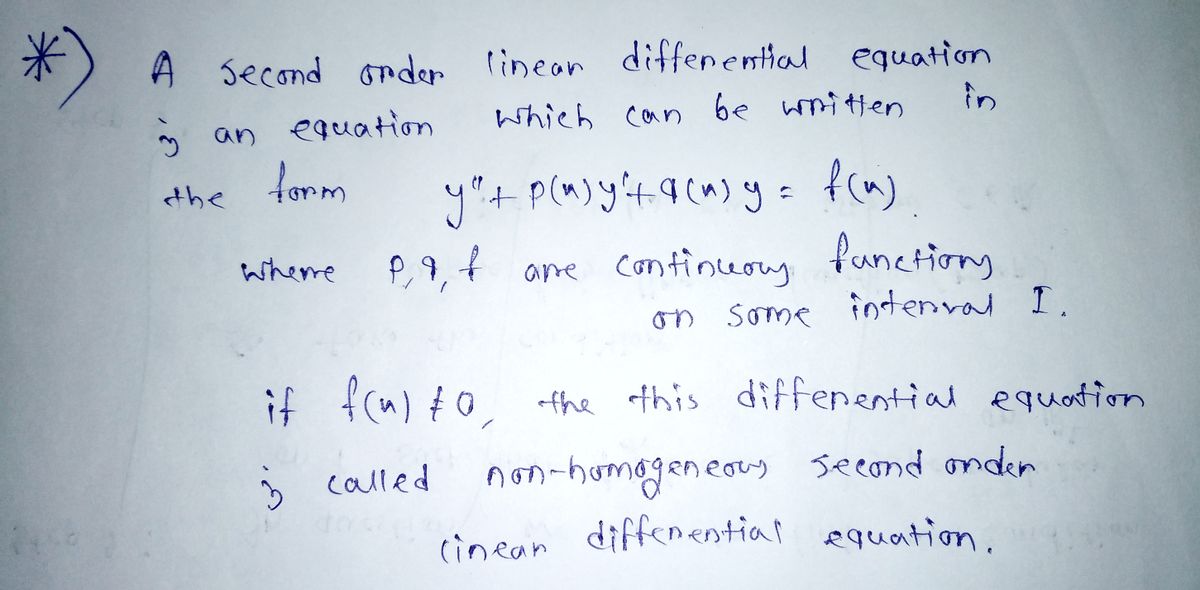 *) A second order linear differential equation
is an equation which can be written in
the form y"+ p(x)y'+q(x) y = f(x).
where p,q, f are continuous functions
on some interval I.
if f(x) ≠ 0, the this differential equation
is called non-homogeneous second order
linear differential equation.